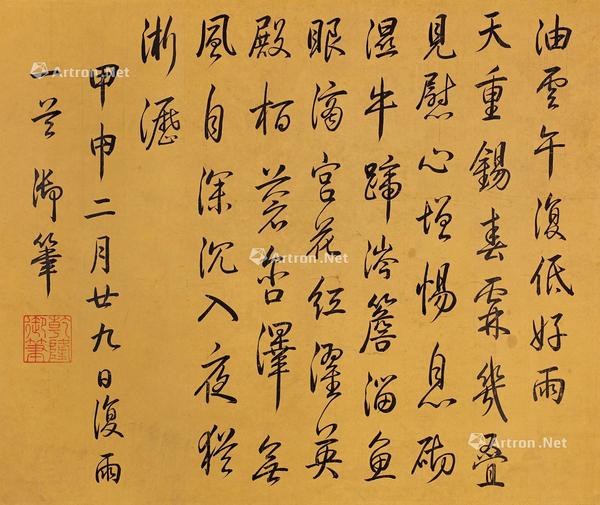 油雲午復低好雨
天重錫春霖幾疊
見慰心增惕息砌
濕牛蹄涔簷溜魚
眼滴宮花紅濯英
殿柏蒼含澤無
風自深沉入夜猶
淅瀝
甲申二月廿九日復雨
一首 御筆
乾隆御筆
Artron.Net
Artron.Net
Artron.Net
Artron.Net
Artron.Net